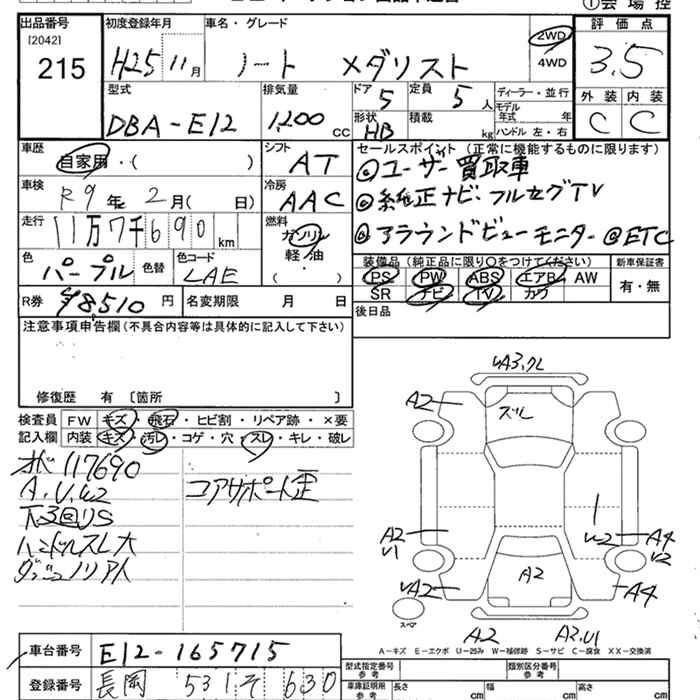 出品番号 初度登録年月 車名・グレード 評価点
[2042]
215 H25 11月 ノート メダリスト 2WD 4WD 3.5
型式 排気量 ドア 5 定員 5人 ディーラー・並行 外装 内装
DBA-E12 1,200 CC 形状 HB 積載 kg モデル年式 年 ハンドル 左・右 C C
車歴 自家用・( ) シフト AT セールスポイント(正常に機能するものに限ります)
◎ユーザー買取車
車検 R9年 2月( 日) 冷房 AAC ◎純正ナビ・フルセグTV
走行 11万7千690km 燃料 ガソリン 軽・油 ( ) ◎アラウンドビューモニター ◎ETC
色 パープル 色替 色コード LAE
装備品(純正品に限り○をつけてください) 新車保証書
PS PW ABS エアB AW 有・無
SR ナビ TV カワ
R券 ¥8510円 名変期限 月 日 後日品
注意事項申告欄(不具合内容等は具体的に記入して下さい)
修復歴 有〔箇所 〕
検査員 FW キズ・飛石・ヒビ割・リペア跡・×要
記入欄 内装 キズ・汚レ・コゲ・穴・スレ・キレ・破レ
117690 コアサポート歪
A.U.W2
ハンドルスレ大
A2
ズレ
A2
U1
W2
A4
U2
A2
A2
A4
スペア
A2
A2.U1
A-キズ E-エクボ U-凹み W-補修跡 S-サビ C-腐食 XX-交換済
車台番号 E12-165715
登録番号 長岡 531 そ 630
型式指定番号 参考 類別区分番号 参考
車庫証明用 参考 長さ cm 幅 cm 高さ cm